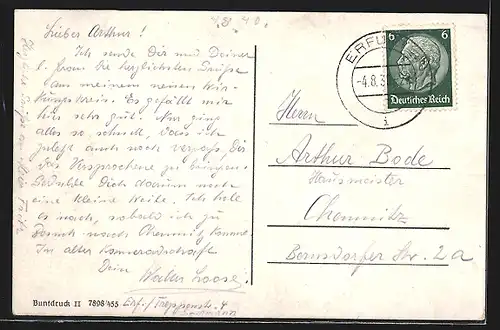 Lieber Arthur!
Ich sende Dir und Deiner
l. Frau die herzlichsten Grüße
aus meinem neuen Wir-
kungskreis. Es gefällt mir
hier sehr gut! Nur ging
alles so schnell, dass ich
zuletzt auch noch vergaß Dir
das Versprochene zu bringen.
Gedulde Dich darum noch
eine kleine Weile. Ich hole
es nach, sobald ich zu
Besuch nach Chemnitz komme.
In alter Kameradschaft
Dein Walter Loose.
Buntdruck II 7898/455
Erf./Treppenstr. 4
ERFU
-4.8.3
i
6 6
Deutsches Reich
Herrn
Arthur Bode
Hausmeister
Chemnitz
Bernsdorfer Str. 2a